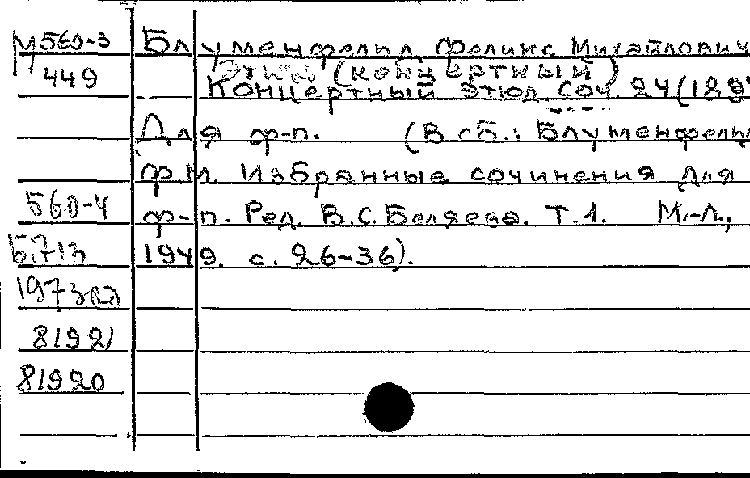 М560-3 Блуменфельд Феликс Михайлович
449 Этюд (концертный)
Концертный этюд соч. 24 (189
Для ф-п. (В сб.: Блуменфельд
Ф.М. Избранные сочинения для
560-4 ф-п. Ред. В.С. Беляева. Т.1. М.-Л.,
1949. с. 26-36).
81921
81920